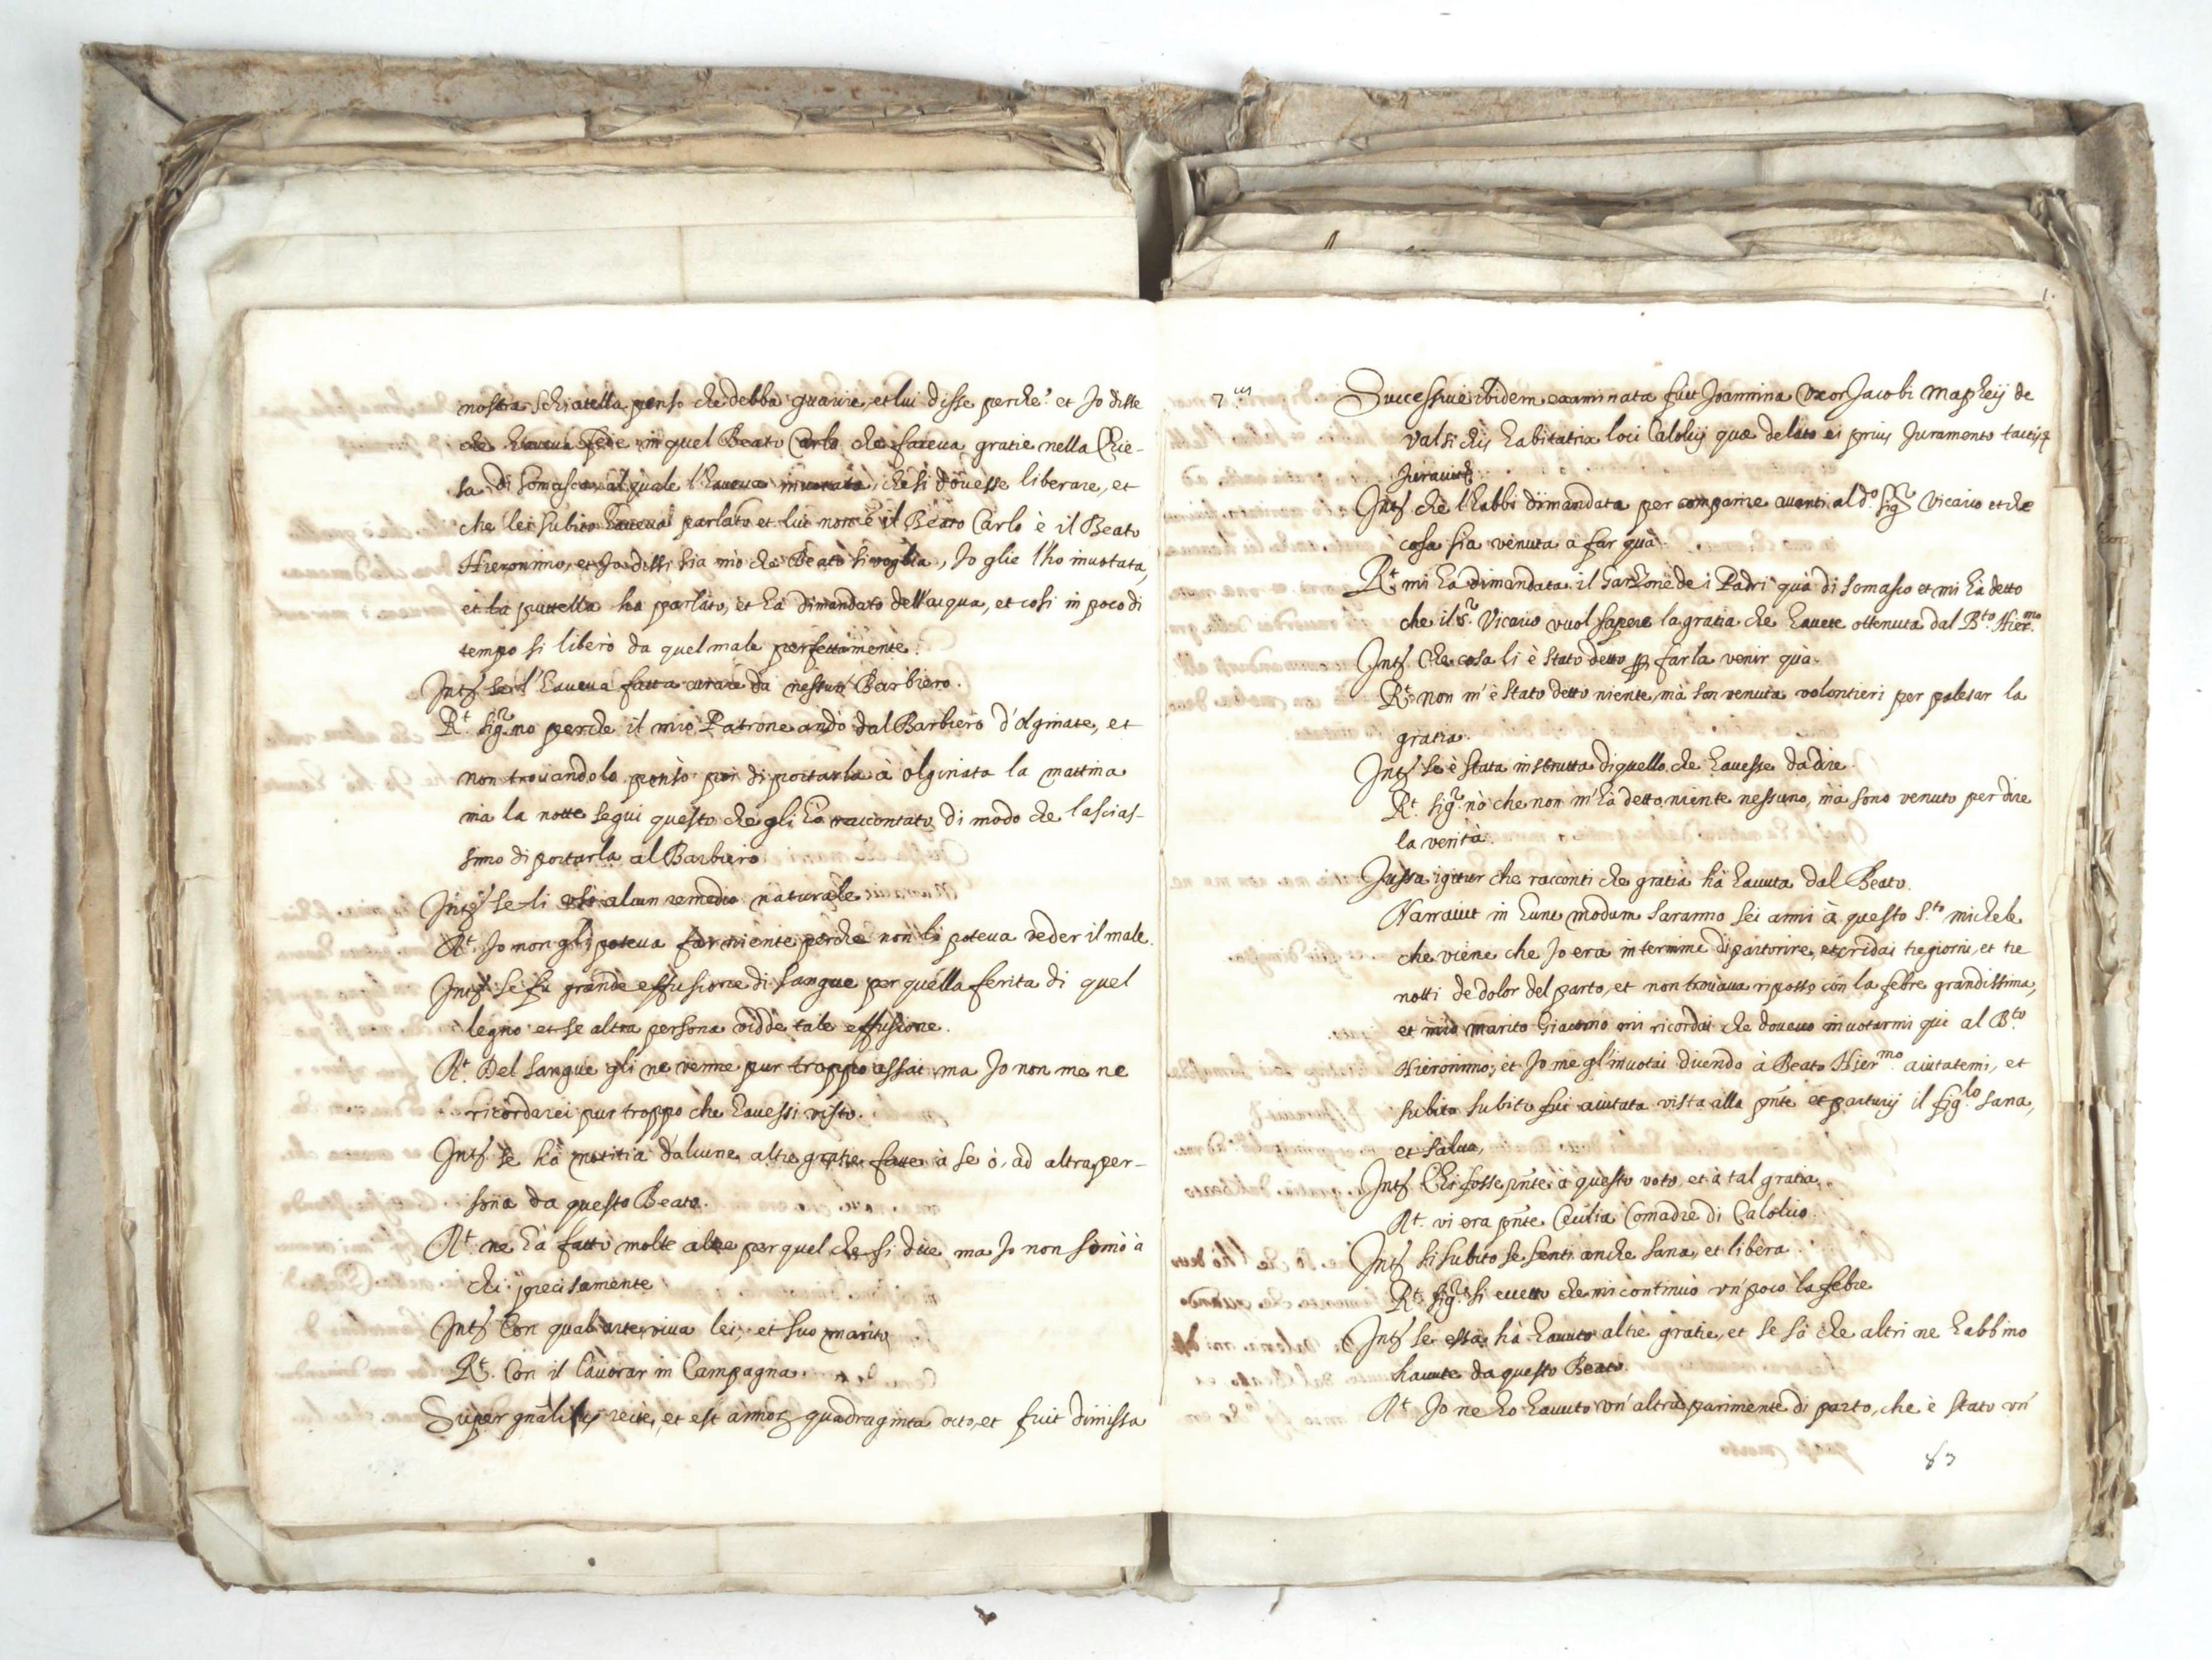 nostra schiatella penso che debba guarire, et lui disse perche? et Io disse
che haveva fede in quel Beato Carlo che faceva gratie nella Chie-
sa di Somasca al quale l'haveva invotata, che si dovesse liberare, et
che lei subito haveva parlato et lui non è il Beato Carlo è il Beato
Hieronimo, et Io dissi sia mò che Beato si voglia, Io glie l'ho invotata,
et la puttella ha parlato, et hà dimandato dell'acqua, et cosi in poco di
tempo si liberò da quel male perfettamente.
Intş se l'haveva fatta curare da nessun Barbiero.
Rt. sigr. no perche il mio Patrone andò dal Barbiero d'Olginate, et
non trovandolo pensò poi di portarla à Olginata la mattina
ma la notte segui questo che gli hò raccontato, di modo che lascias-
simo di portarla al Barbiero
Intş se li usò alcun remedio naturale
Rt. Io non gli poteva far niente perche non li poteva veder il male.
Intş se fu grande effusione di sangue per quella ferita di quel
legno et se altra persona vidde tale effusione.
Rt. Del sangue gli ne venne pur troppo assai ma Io non me ne
ricordarei pur troppo che havessi visto.
Intş se hà notitia d'alcune altre gratie fatte à se ò, ad altra per-
sona da questo Beato.
Rt. ne hà fatto molte altre per quel che si dice ma Io non sò mò à
chi precisamente
Intş Con qual arte viva lei, et suo marito
Rt. Con il lavorar in Campagna.
Super gnãlibus recte, et est annor. quadraginta octo, et fuit dimissa
1.
7.us
Successive ibidem examinata fuit Joannina Uxor Jacobi Maphey de
Valsichijs habitatrix loci Calolcij quæ delato ei prius Juramento tactisq.
Juravit
Intş che l'habbi dimandata per comparire avanti al do. sigr. Vicario et che
cosa sia venuta a far quà.
Rt. mi hà dimandata il Garzone de i Padri quà di Somasco et mi hà detto
che il sr. Vicario vuol sapere la gratia che havete ottenuta dal Bto. Hiermo.
Intş Che cosa li è stato detto p farla venir quà.
Rt. Non m'è stato detto niente, mà son venuta volontieri per palesar la
gratia.
Intş se è stata instrutta di quello che havesse da dire.
Rt. sigr. nò che non m'hà detto niente nessuno, mà sono venuto per dire
la verità.
Jussa igitur che racconti che gratia hà havuta dal Beato.
Narravit in hunc modum saranno sei anni à questo Sto. Michele
che viene che Io era in termine di partorire, et cridai tre giorni, et tre
notti de dolor del parto, et non trovava riposso con la febre grandissima,
et mio marito Giacomo mi ricordò che dovevo invotarmi qui al Bto.
Hieronimo, et Io me gl'invotai dicendo à Beato Hiermo. aiutatemi, et
subito subito fui aiutata vista alla pnte et parturij il figlo. sana,
et salva,
Intş Chi fosse pnte à questo voto, et à tal gratia.
Rt. vi era pnte Cecilia Comadre di Calolcio.
Intş si subito se senti anche sana, et libera.
Rt. sigr. si eccetto che mi continuò un poco la febre
Intş se essa hà havuto altre gratie, et se sà che altri ne habbino
havute da questo Beato.
Rt. Io ne ho havuto un'altra parimente di parto, che è stato un
83